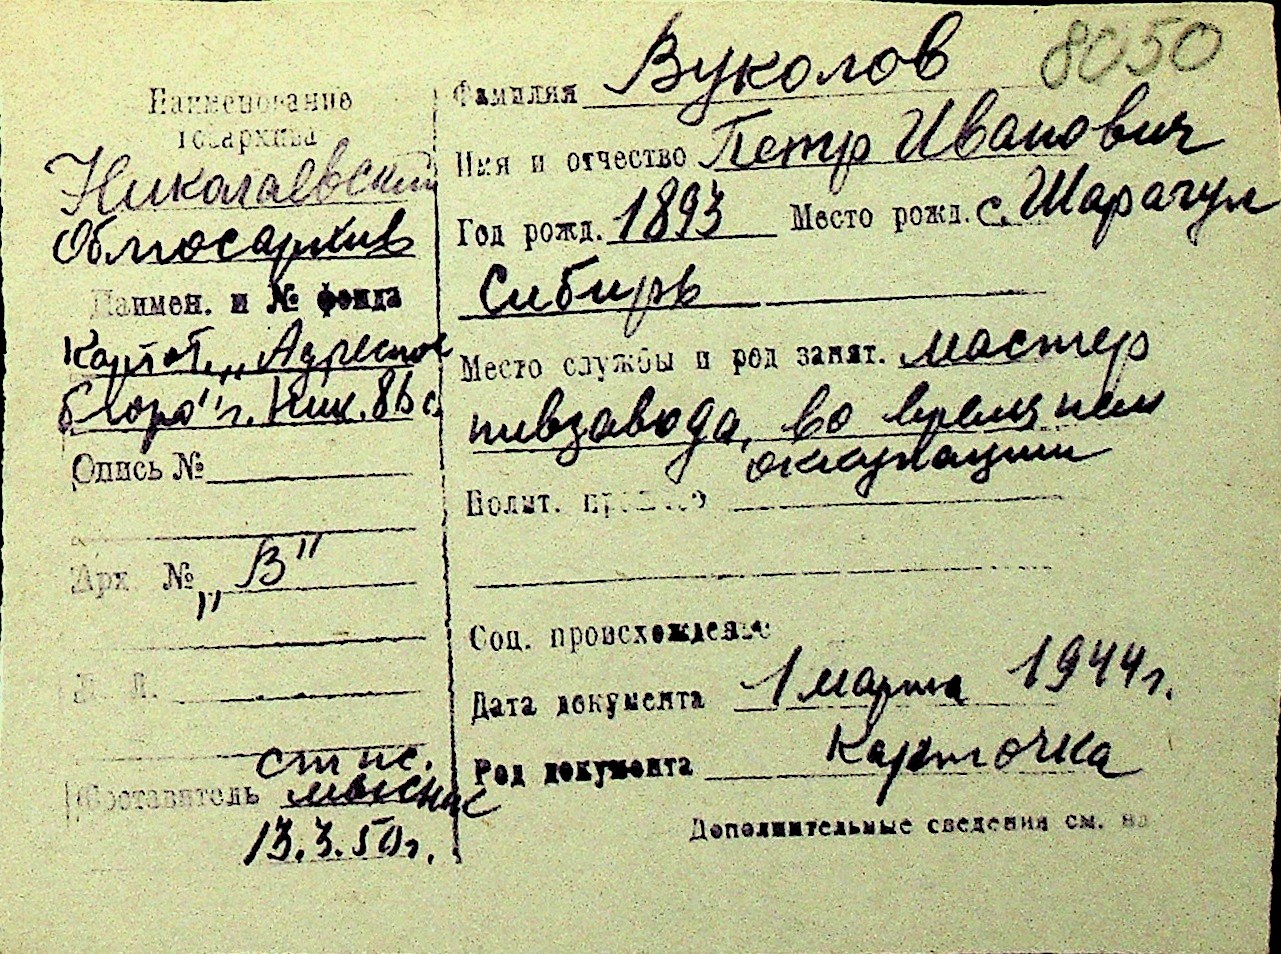 8050
Наименование
госархива
Николаевский
Облгосархив
Наимен. и № фонда
Картот. „Адресное
бюро" г. Ник.
Опись №
Арх. № „В"
Л. л.
ст пс.
Составитель
13.3.50г.
Фамилия Вуколов
Имя и отчество Петр Иванович
Год рожд. 1893 Место рожд. с. Шарагул
Сибирь
Место службы и род занят. мастер
пивзавода, во время нем
оккупации
Полит. прошлое
Соц. происхождение
Дата документа 1 марта 1944г.
Род документа карточка
Дополнительные сведения см. на